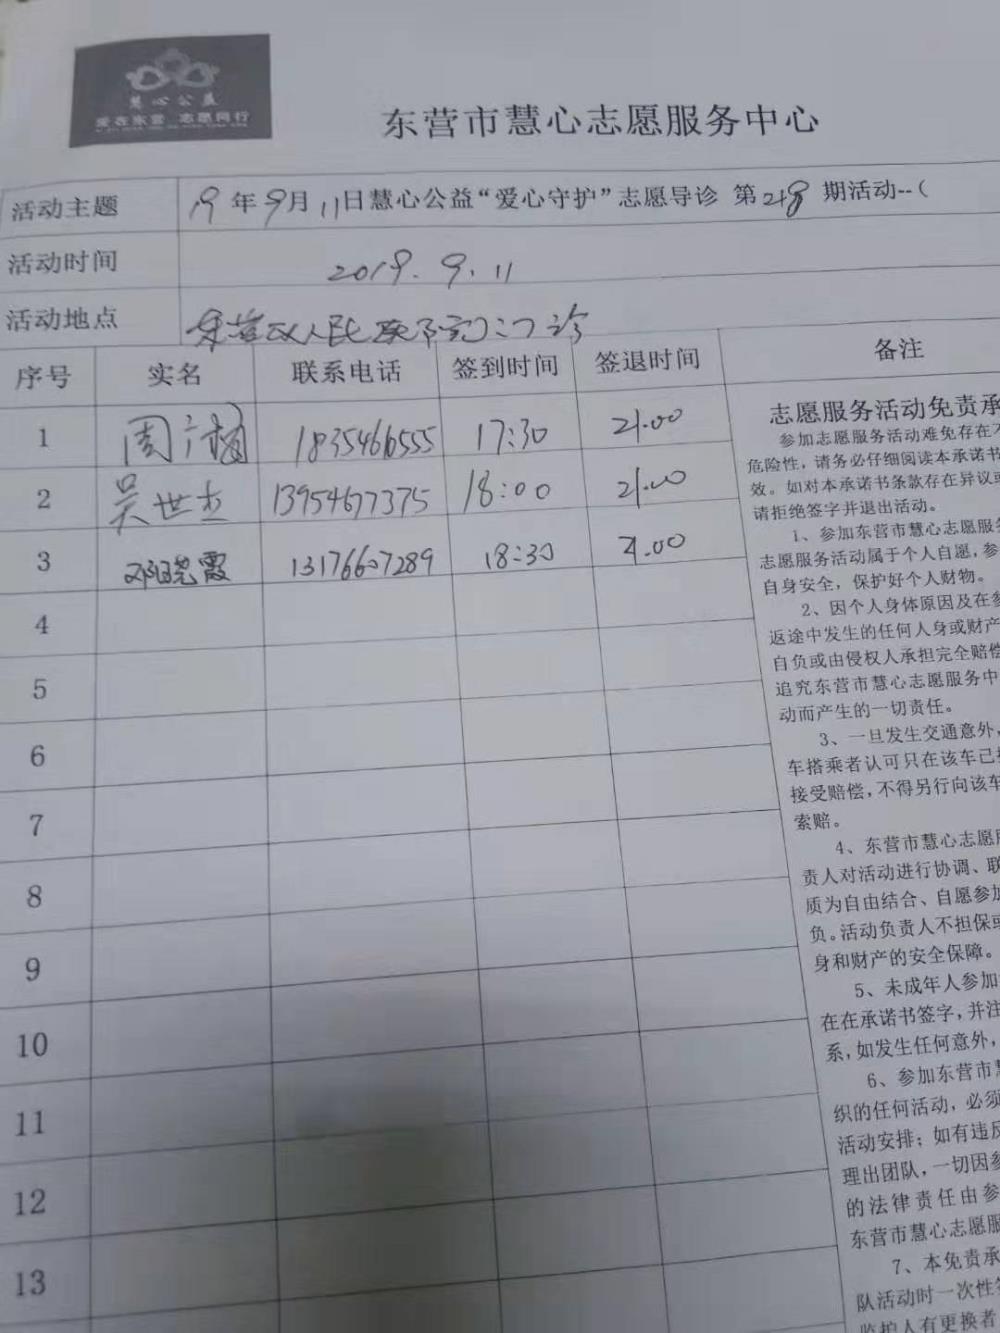 慧心公益
爱在东营 志愿同行
东营市慧心志愿服务中心
活动主题 19年9月11日慧心公益“爱心守护”志愿导诊 第218期活动--(
活动时间 2019.9.11
活动地点 东营区人民医院门诊
序号 实名 联系电话 签到时间 签退时间 备注
1 周 18354661555 17:30 21.00
2 吴世杰 13954677375 18:00 21.00
3 邓晓霞 13176607289 18:30 21.00
4
5
6
7
8
9
10
11
12
13
志愿服务活动免责承
参加志愿服务活动难免存在不
危险性，请务必仔细阅读本承诺书
效。如对本承诺书条款存在异议或
请拒绝签字并退出活动。
1、参加东营市慧心志愿服务
志愿服务活动属于个人自愿，参
自身安全，保护好个人财物。
2、因个人身体原因及在参
返途中发生的任何人身或财产
自负或由侵权人承担完全赔偿
追究东营市慧心志愿服务中
动而产生的一切责任。
3、一旦发生交通意外，
车搭乘者认可只在该车已
接受赔偿，不得另行向该车
索赔。
4、东营市慧心志愿
责人对活动进行协调、联
质为自由结合、自愿参加
负。活动负责人不担保或
身和财产的安全保障。
5、未成年人参加
在在承诺书签字，并注
系，如发生任何意外，
6、参加东营市慧
织的任何活动，必须
活动安排；如有违反
理出团队，一切因参
的法律责任由参
东营市慧心志愿服
7、本免责承
队活动时一次性签
监护人有更换者